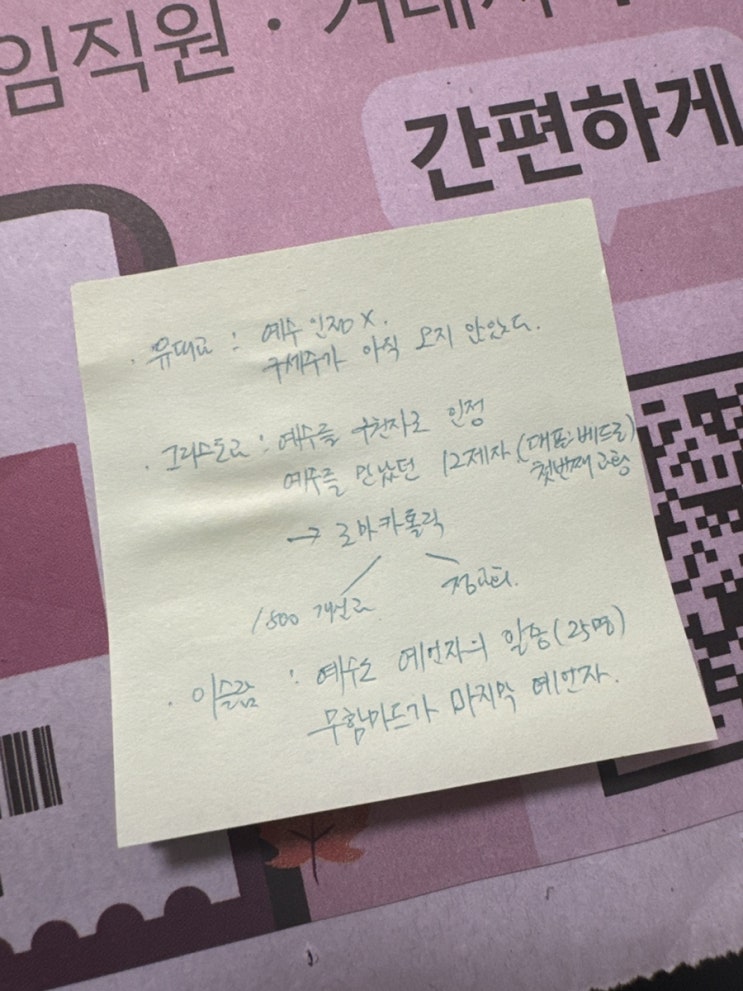 임직원 · 거래처
간편하게
· 유대교 : 예수 인정 X.
구세주가 아직 오지 않았다.
· 그리스도교 : 예수를 구원자로 인정
예수를 만났던 12제자 (대표:베드로)
첫번째 교황
→ 로마카톨릭
1500 개신교
정교회.
· 이슬람 : 예수는 예언자의 일종 (25명)
무함마드가 마지막 예언자.